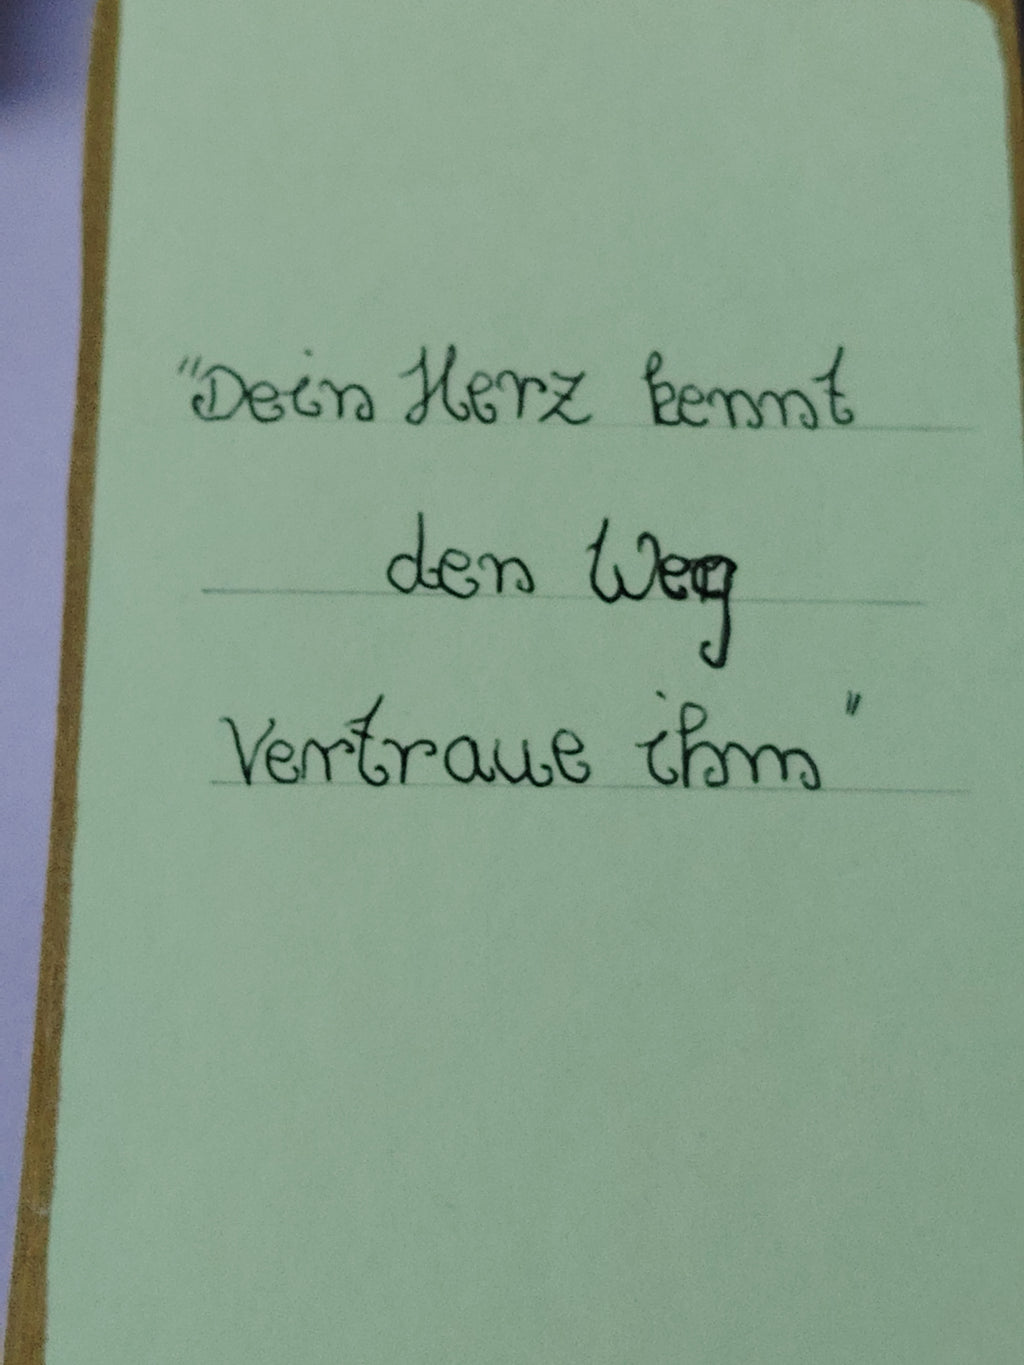 "Dein Herz kennt
den Weg
Vertraue ihm"